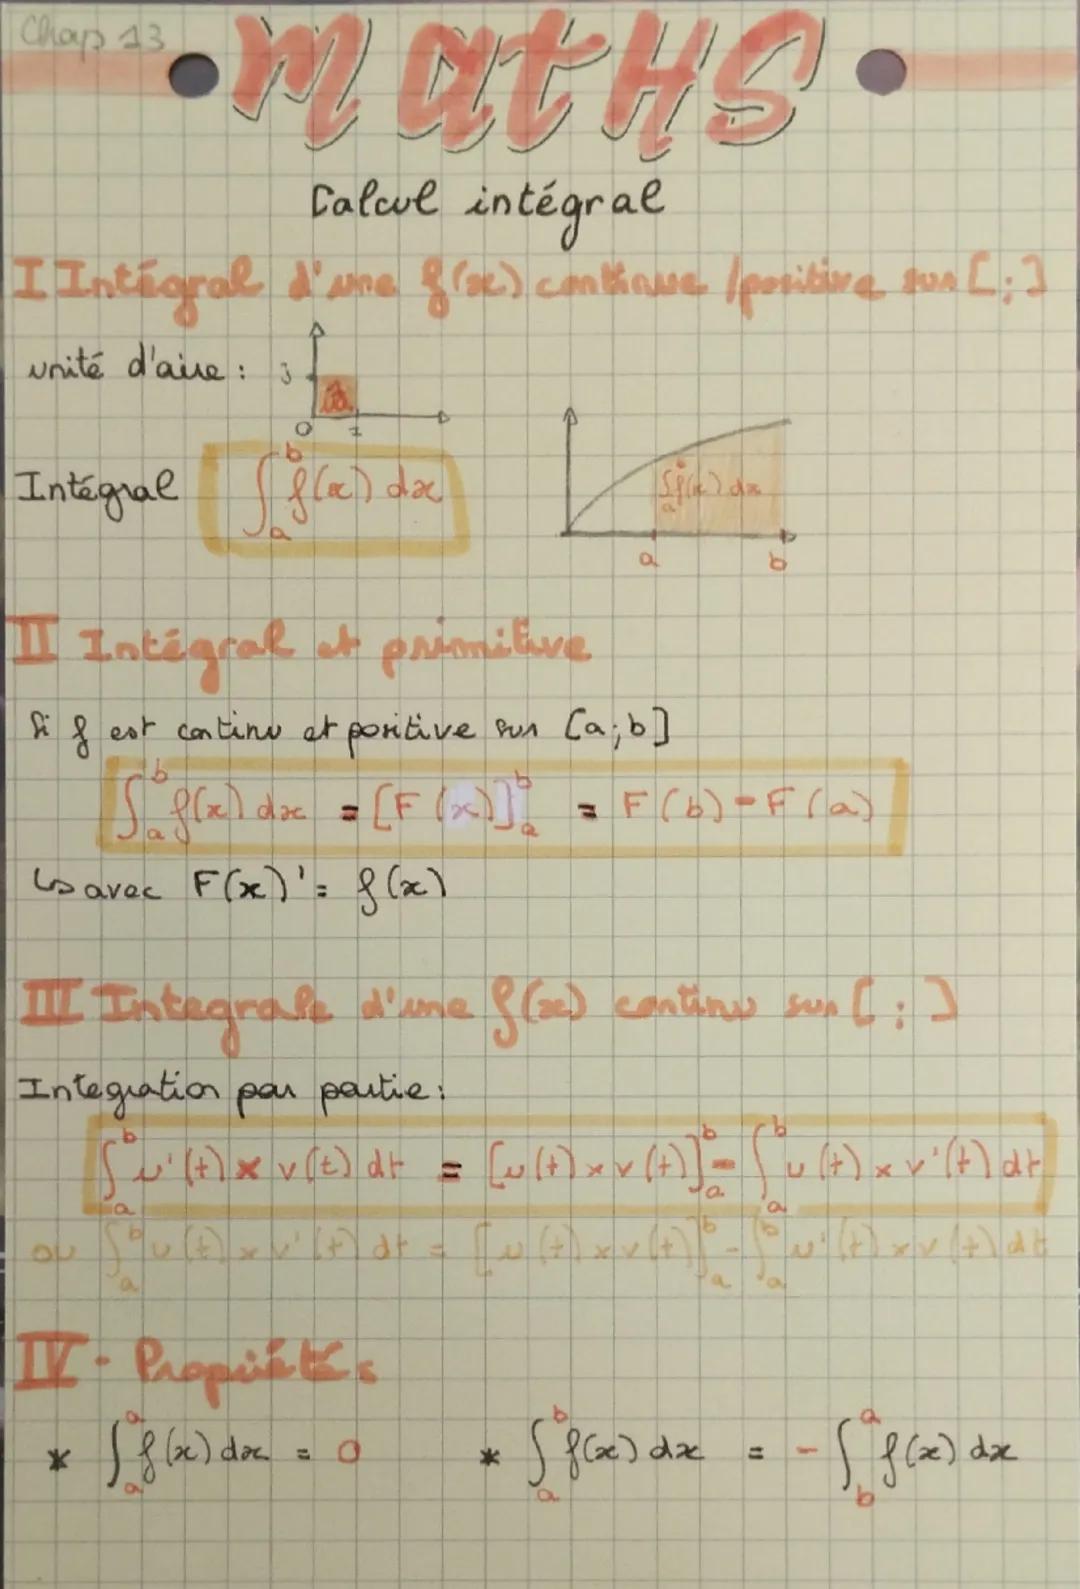 Chap 13
MATHS
Calcul intégral
I Intégral d'une f(x) continue / positive sur [ ; ]
unité d'aire : J
O I
Intégral ∫_a^b f(x) dx
∫_a^b f(x) dx
a b
II Intégral et primitive
Si f est continu et positive sur [a;b]
∫_a^b f(x) dx = [F(x)]_a^b = F(b) - F(a)
↳ avec F(x)' = f(x)
III Integrale d'une f(x) continu sur [ ; ]
Integration par partie :
∫_a^b u'(t) × v(t) dt = [u(t) × v(t)]_a^b - ∫_a^b u(t) × v'(t) dt
ou ∫_a^b u(t) × v'(t) dt = [u(t) × v(t)]_a^b - ∫_a^b u'(t) × v(t) dt
IV - Propriétés
* ∫_a^a f(x) dx = 0 * ∫_a^b f(x) dx = - ∫_b^a f(x) dx